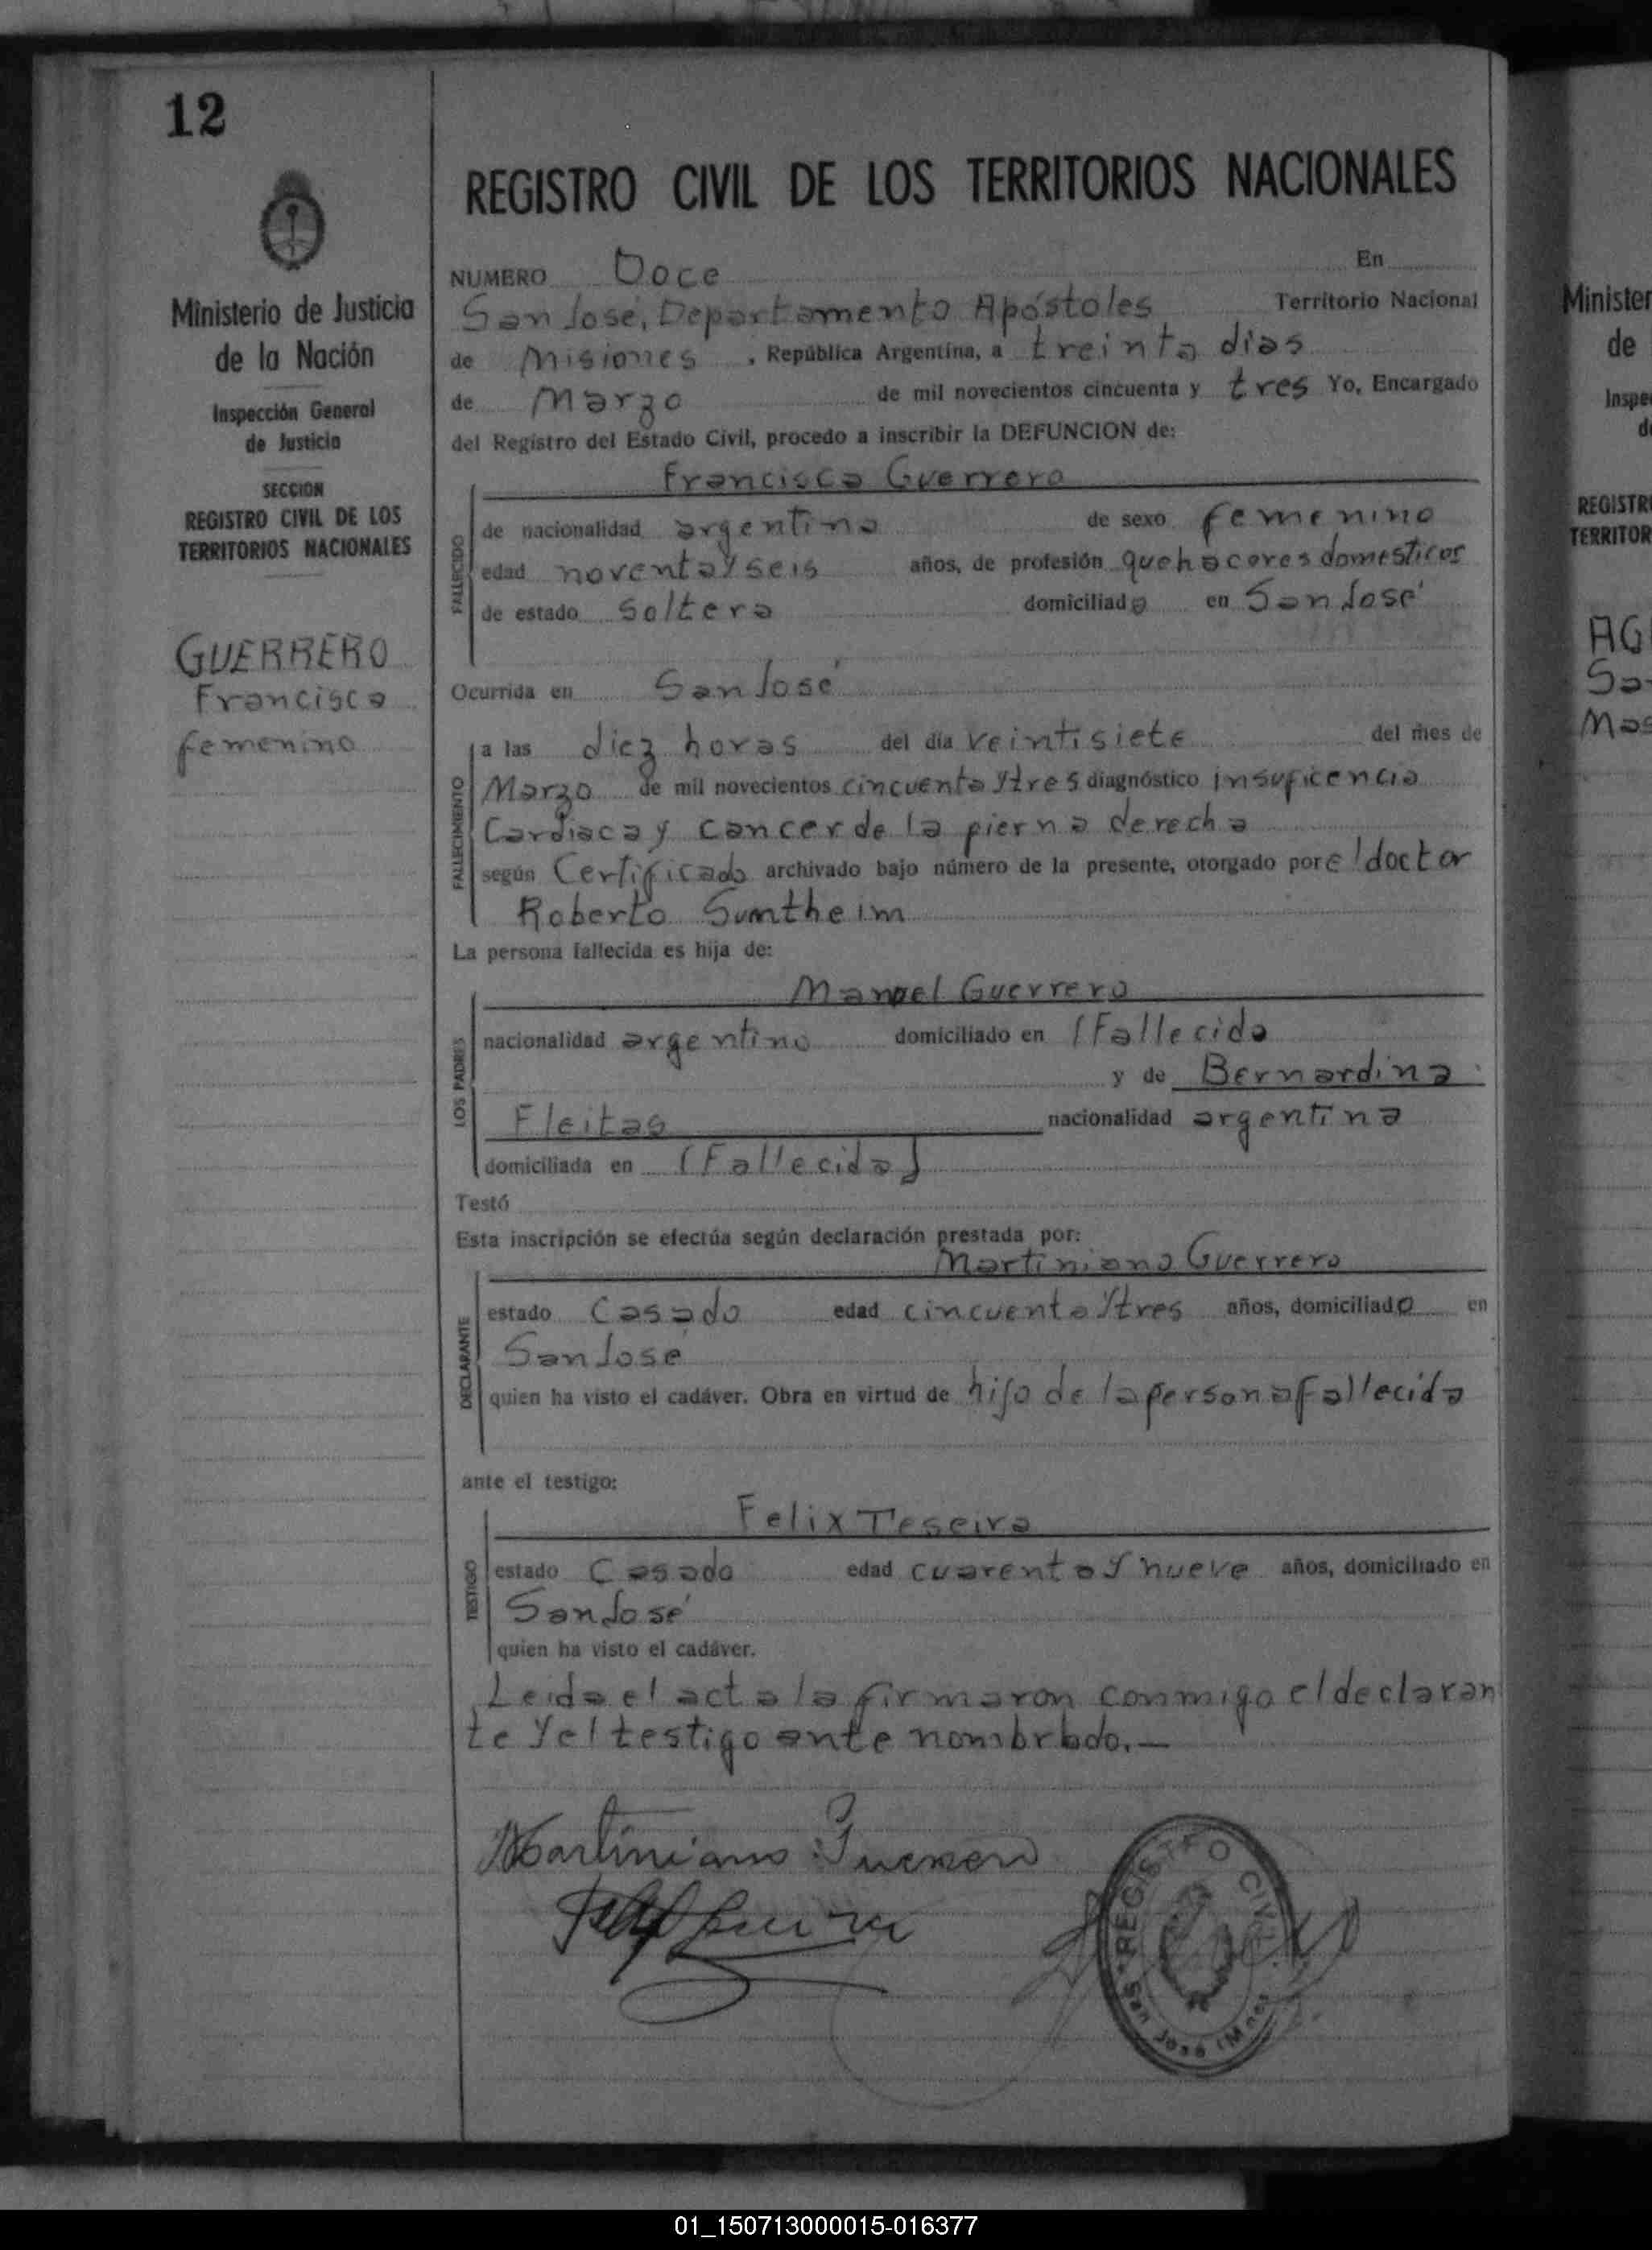 12
Ministerio de Justicia
de la Nación
Inspección General
de Justicia
SECCION
REGISTRO CIVIL DE LOS
TERRITORIOS NACIONALES
GUERRERO
Francisca
femenino
REGISTRO CIVIL DE LOS TERRITORIOS NACIONALES
NUMERO Doce En
San José, Departamento Apóstoles Territorio Nacional
de Misiones , República Argentina, a treinta dias
de Marzo de mil novecientos cincuenta y tres Yo, Encargado
del Registro del Estado Civil, procedo a inscribir la DEFUNCION de:
Francisca Guerrero
FALLECIDO
de nacionalidad argentina de sexo femenino
edad noventa y seis años, de profesión quehaceres domesticos
de estado Soltera domiciliada en San José
Ocurrida en San José
FALLECIMIENTO
a las diez horas del día veintisiete del mes de
Marzo de mil novecientos cincuenta y tres diagnóstico insuficencia
Cardiaca y cancer de la pierna derecha
según Certificado archivado bajo número de la presente, otorgado por el doctor
Roberto Sumtheim
La persona fallecida es hija de:
Manuel Guerrero
LOS PADRES
nacionalidad argentino domiciliado en (Fallecido
y de Bernardina
Fleitas nacionalidad argentina
domiciliada en (Fallecida)
Testó
Esta inscripción se efectúa según declaración prestada por:
Martiniano Guerrero
DECLARANTE
estado Casado edad cincuenta y tres años, domiciliado en
San José
quien ha visto el cadáver. Obra en virtud de hijo de la persona fallecida
ante el testigo:
Felix Teseira
TESTIGO
estado Casado edad cuarenta y nueve años, domiciliado en
San José
quien ha visto el cadáver.
Leida el acta la firmaron conmigo el declaran
te y el testigo ante nombrado.—
Martiniano Guerrero
REGISTRO CIVIL
San José (Mnes)
Minister
de
Inspe
de
REGISTR
TERRITOR
AG
Sa
Mas
01_150713000015-016377